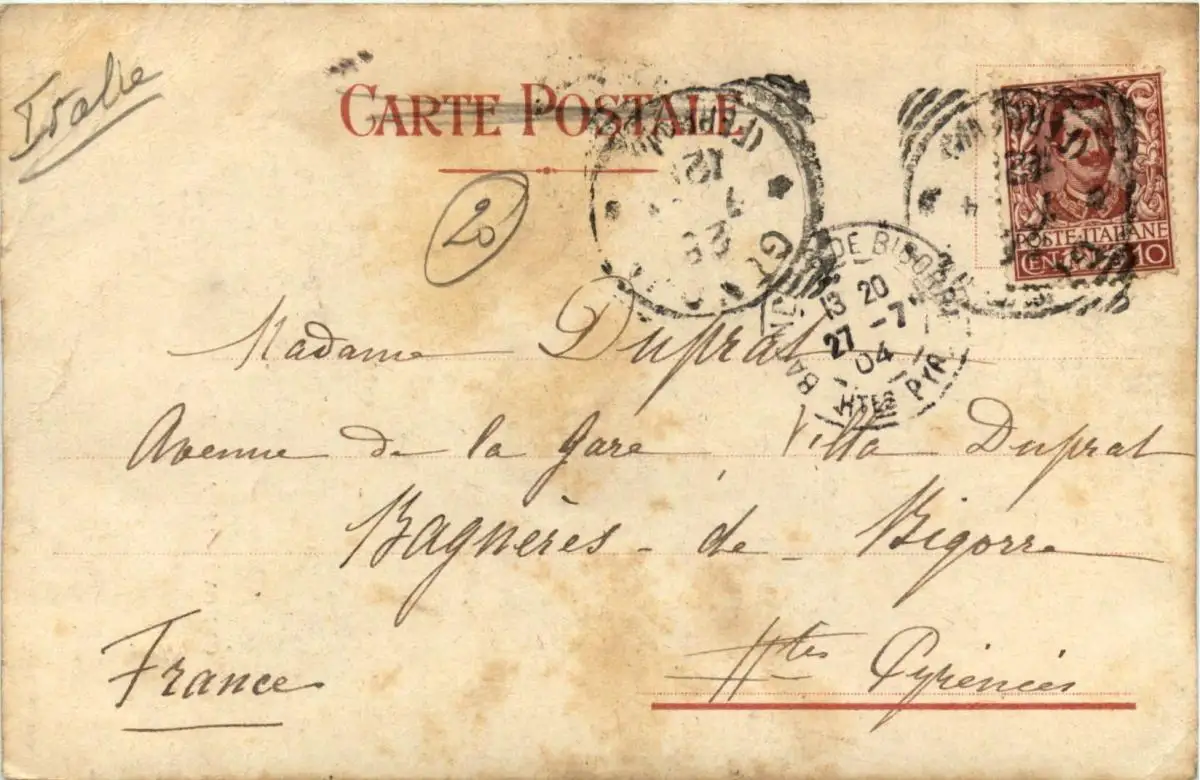 Italie
CARTE POSTALE
20
POSTE·ITALIANE
CENT 10
DE BIGORRE
13 20
27 -7
04
HTES PYR.
Madame Duprat
Avenue de la Gare, Villa Duprat
Bagnères-de-Bigorre
Htes Pyrénées
France